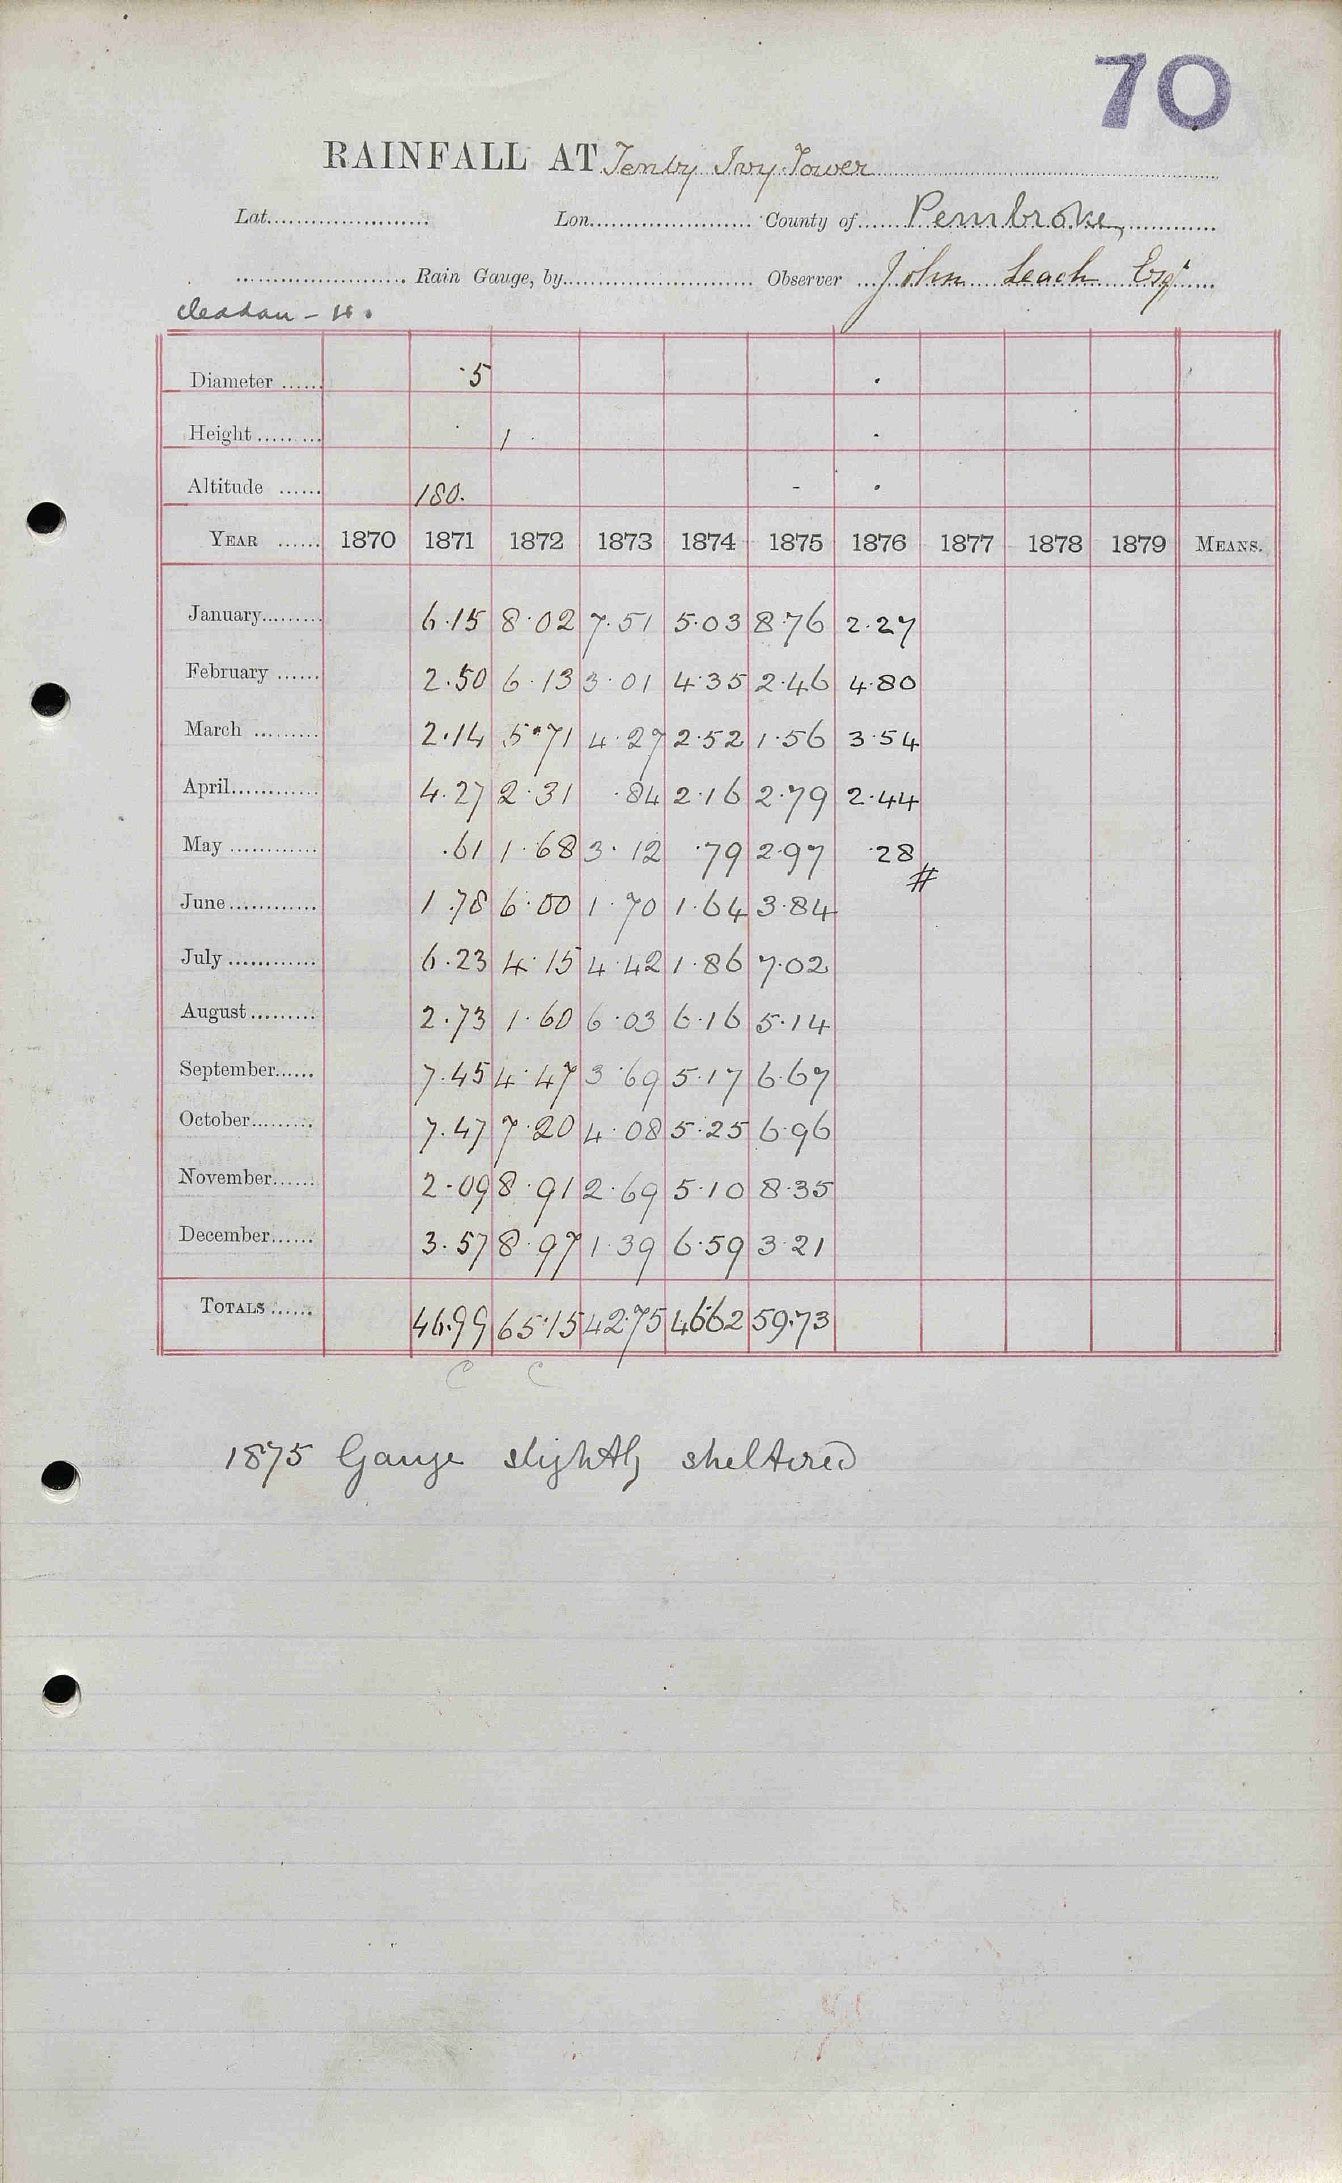 70
RAINFALL AT Tenby Ivy Tower
Lat. Lon. County of Pembroke,
Rain Gauge, by Observer John Leach Esqr
Diameter 5
Height 1
Altitude 180. -
YEAR 1870 1871 1872 1873 1874 1875 1876 1877 1878 1879 MEANS.
January 6.15 8.02 7.51 5.03 8.76 2.27
February 2.50 6.13 3.01 4.35 2.46 4.80
March 2.14 5.71 4.27 2.52 1.56 3.54
April 4.27 2.31 .84 2.16 2.79 2.44
May .61 1.68 3.12 .79 2.97 .28 #
June 1.78 6.00 1.70 1.64 3.84
July 6.23 4.15 4.42 1.86 7.02
August 2.73 1.60 6.03 6.16 5.14
September 7.45 4.47 3.69 5.17 6.67
October 7.47 7.20 4.08 5.25 6.96
November 2.09 8.91 2.69 5.10 8.35
December 3.57 8.97 1.39 6.59 3.21
TOTALS 46.99 65.15 42.75 46.62 59.73
C C
1875 Gauge slightly sheltered